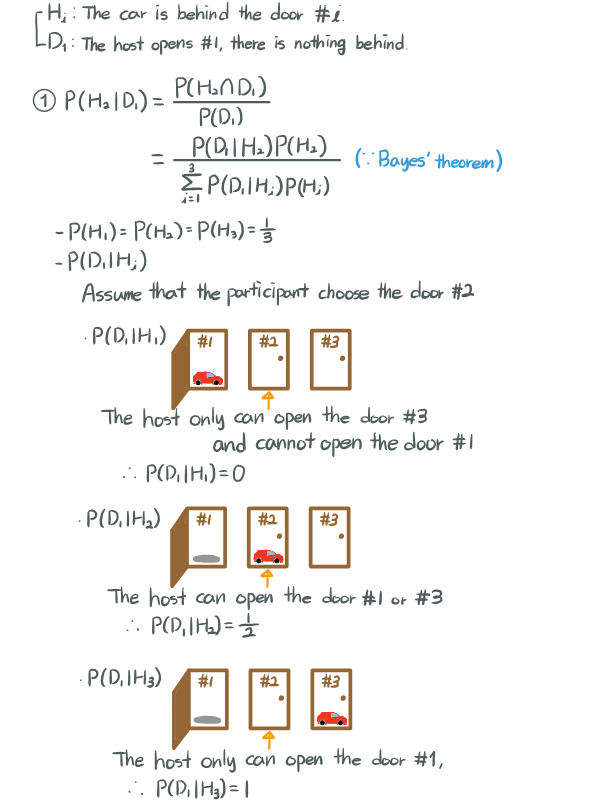 H_i : The car is behind the door #i.
D_1 : The host opens #1, there is nothing behind.
① P(H_2|D_1) = P(H_2∩D_1) / P(D_1)
= P(D_1|H_2)P(H_2) / ∑_{i=1}^{3} P(D_1|H_i)P(H_i) (∵ Bayes' theorem)
- P(H_1) = P(H_2) = P(H_3) = 1/3
- P(D_1|H_i)
Assume that the participant choose the door #2
· P(D_1|H_1) #1 #2 #3
The host only can open the door #3
and cannot open the door #1
∴ P(D_1|H_1) = 0
· P(D_1|H_2) #1 #2 #3
The host can open the door #1 or #3
∴ P(D_1|H_2) = 1/2
· P(D_1|H_3) #1 #2 #3
The host only can open the door #1,
∴ P(D_1|H_3) = 1